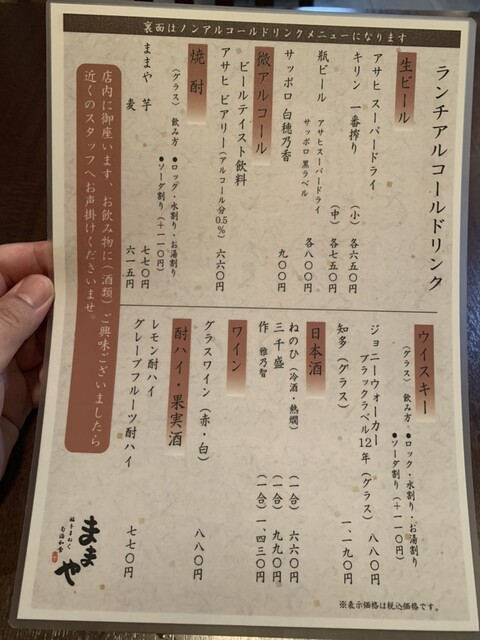 裏面はノンアルコールドリンクメニューになります
ランチアルコールドリンク
生ビール
アサヒ スーパードライ
キリン 一番搾り
(小) 各六五〇円
(中) 各七五〇円
瓶ビール アサヒスーパードライ
サッポロ 黒ラベル
各八〇〇円
サッポロ 白穂乃香 九〇〇円
微アルコール
ビールテイスト飲料
アサヒ ビアリー(アルコール分0.5%) 六六〇円
焼酎
(グラス) 飲み方 ●ロック・水割り・お湯割り
●ソーダ割り(+一一〇円)
ままや 芋 七七〇円
麦 六一五円
店内に御座います、お飲み物に(酒類)ご興味ございましたら
近くのスタッフへお声掛けくださいませ。
ウイスキー
(グラス) 飲み方 ●ロック・水割り・お湯割り
●ソーダ割り(+一一〇円)
ジョニーウォーカー
ブラックラベル12年(グラス) 八八〇円
知多(グラス) 一、一九〇円
日本酒
ねのひ(冷酒・熱燗) (一合) 六六〇円
三千盛 (一合) 九九〇円
作 雅乃智 (一合) 一、四三〇円
ワイン
グラスワイン(赤・白) 八八〇円
酎ハイ・果実酒
レモン酎ハイ
グレープフルーツ酎ハイ 七七〇円
ままや
※表示価格は税込価格です。